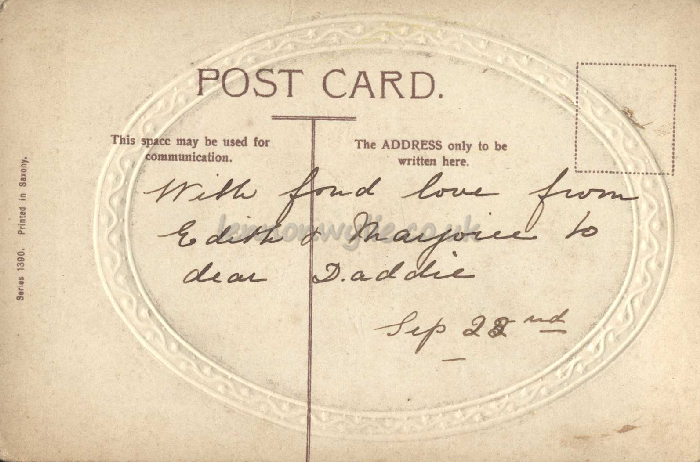 POST CARD.
This space may be used for communication.
The ADDRESS only to be written here.
With fond love from
Edith & Marjorie to
dear Daddie
Sep 22nd
Series 1390. Printed in Saxony.